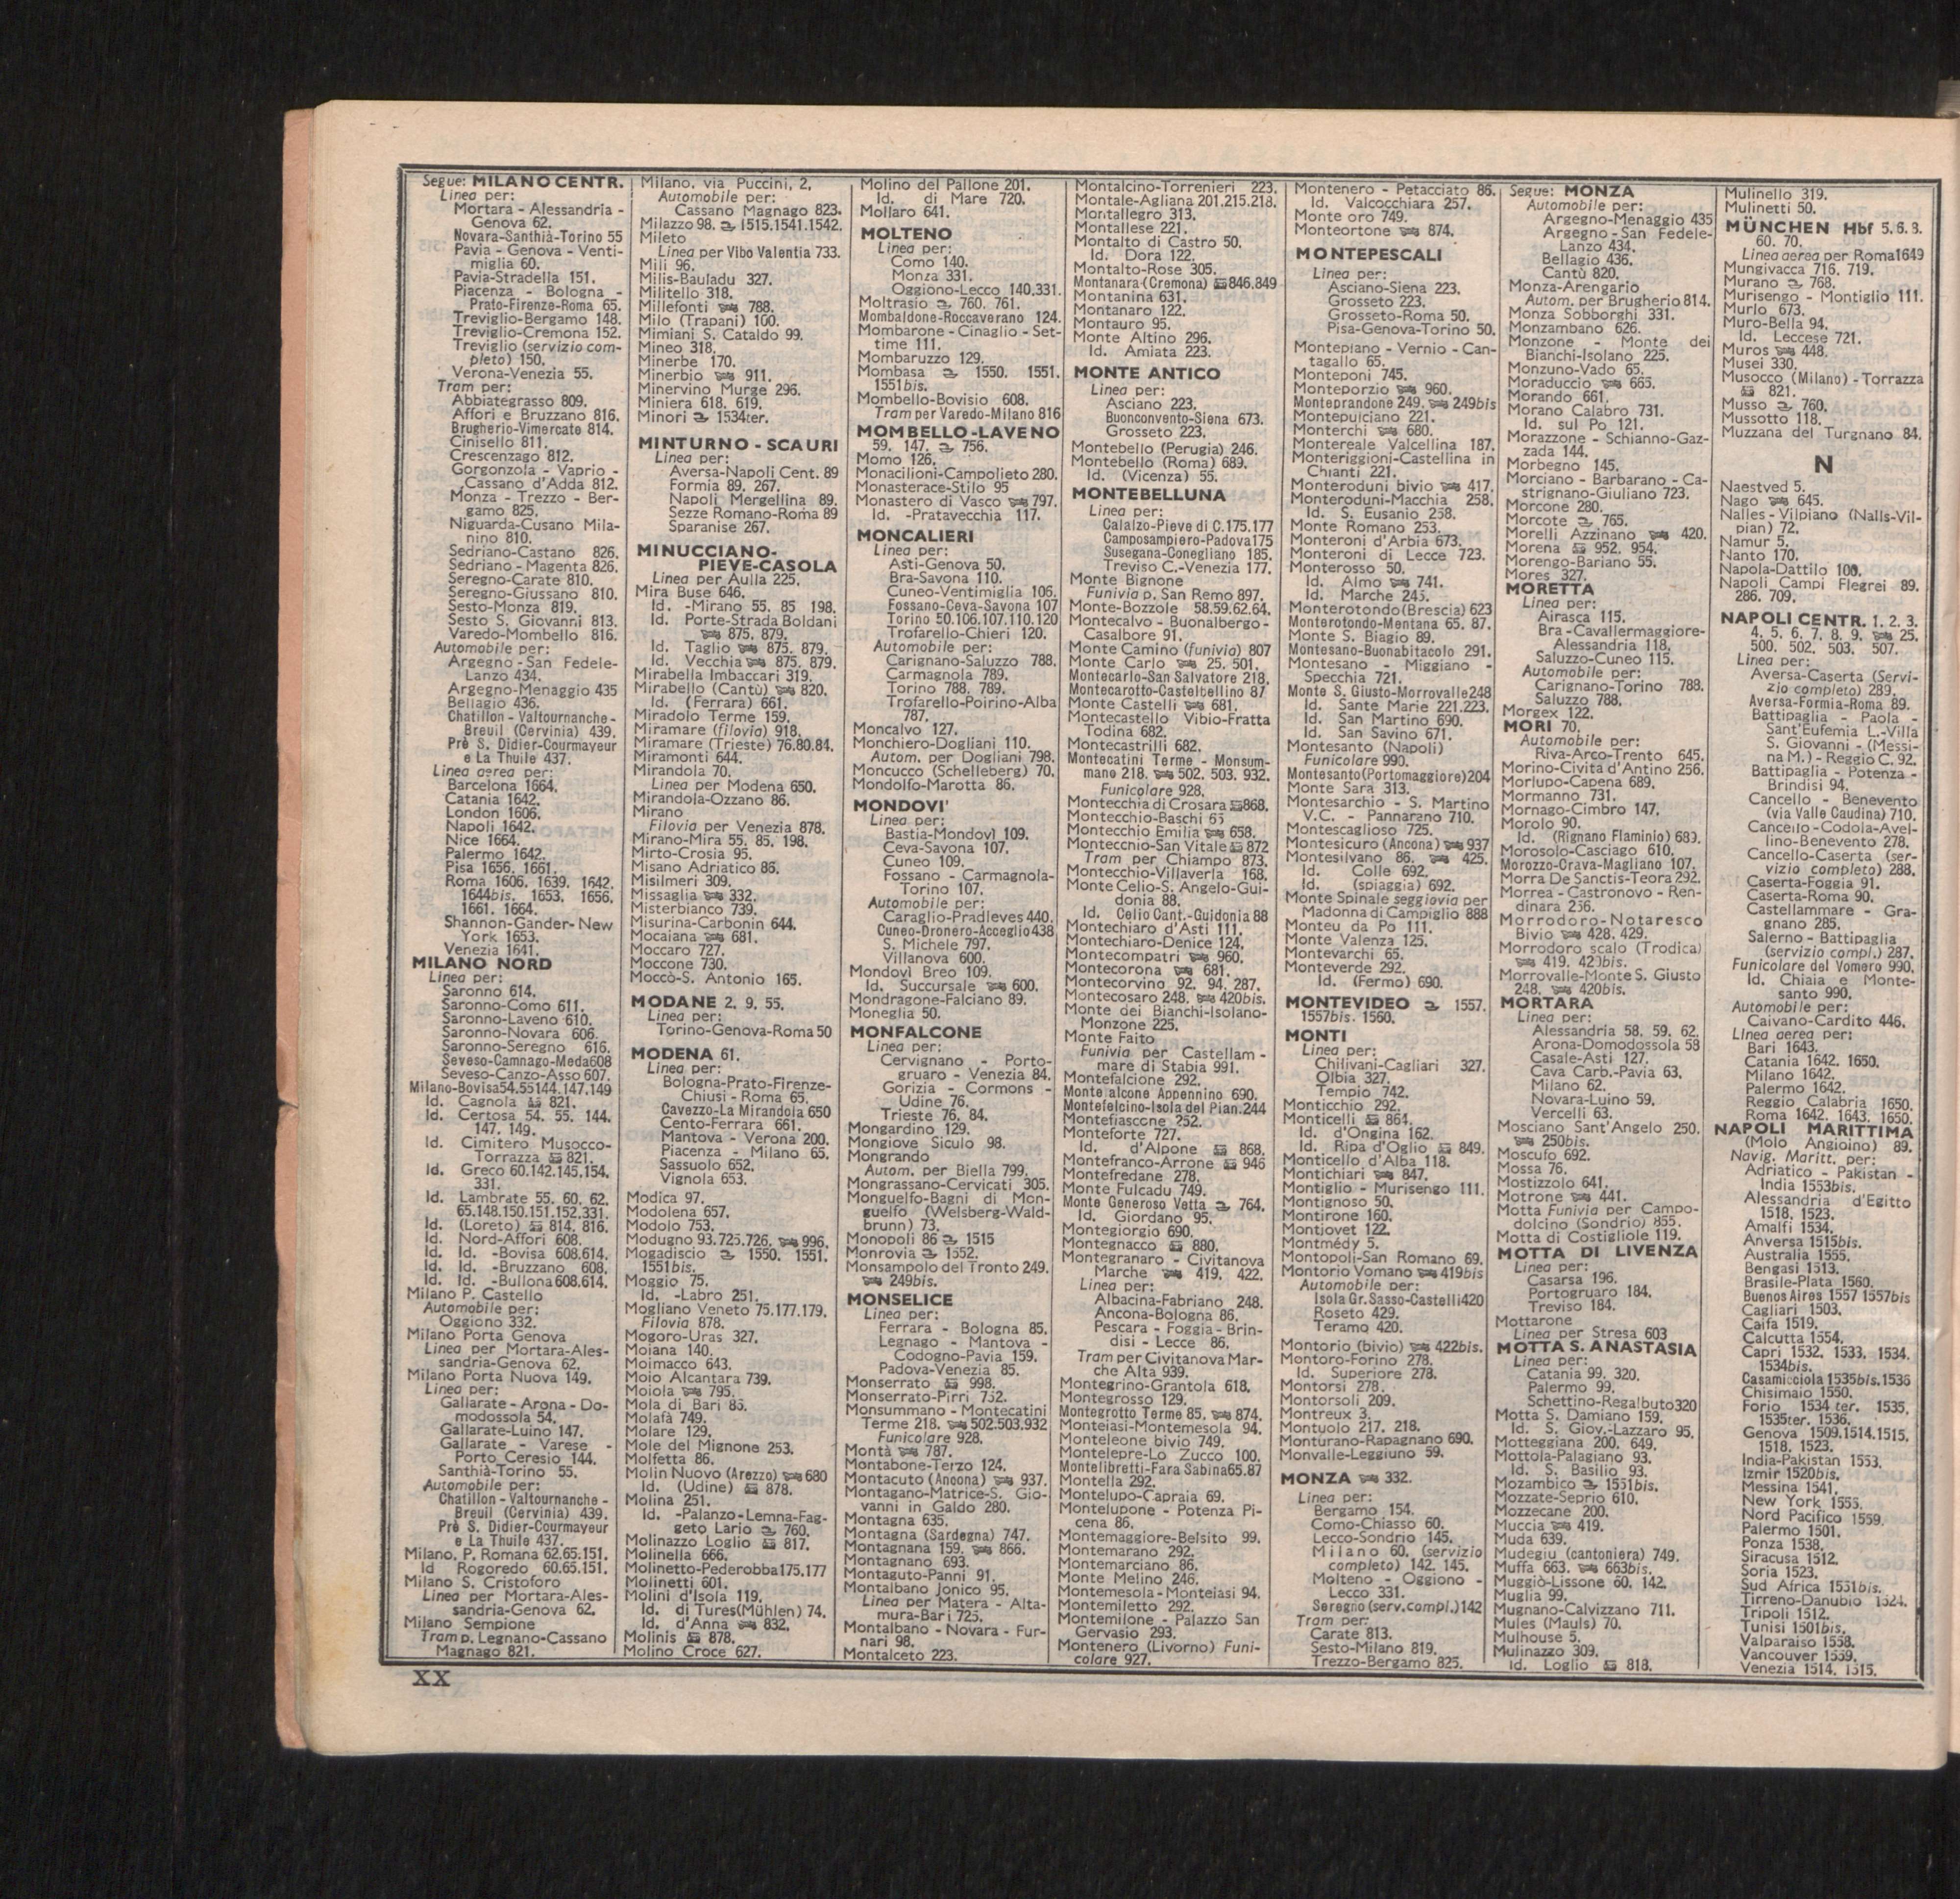 Segue: MILANO CENTR.
Linea per:
Mortara - Alessandria -
Genova 62.
Novara-Santhià-Torino 55
Pavia - Genova - Venti-
miglia 60.
Pavia-Stradella 151.
Piacenza - Bologna -
Prato-Firenze-Roma 65.
Treviglio-Bergamo 148.
Treviglio-Cremona 152.
Treviglio (servizio com-
pleto) 150.
Verona-Venezia 55.
Tram per:
Abbiategrasso 809.
Affori e Bruzzano 816.
Brugherio-Vimercate 814.
Cinisello 811.
Crescenzago 812.
Gorgonzola - Vaprio -
Cassano d'Adda 812.
Monza - Trezzo - Ber-
gamo 825.
Niguarda-Cusano Mila-
nino 810.
Sedriano-Castano 826.
Sedriano - Magenta 826.
Seregno-Carate 810.
Seregno-Giussano 810.
Sesto-Monza 819.
Sesto S. Giovanni 813.
Varedo-Mombello 816.
Automobile per:
Argegno - San Fedele-
Lanzo 434.
Argegno-Menaggio 435
Bellagio 436.
Chatillon - Valtournanche -
Breuil (Cervinia) 439.
Prè S. Didier-Courmayeur
e La Thuile 437.
Linea aerea per:
Barcelona 1664.
Catania 1642.
London 1606.
Napoli 1642.
Nice 1664.
Palermo 1642.
Pisa 1656. 1661.
Roma 1606. 1639. 1642.
1644bis. 1653. 1656.
1661. 1664.
Shannon-Gander-New
York 1653.
Venezia 1641.
MILANO NORD
Linea per:
Saronno 614.
Saronno-Como 611.
Saronno-Laveno 610.
Saronno-Novara 606.
Saronno-Seregno 616.
Seveso-Camnago-Meda608
Seveso-Canzo-Asso 607.
Milano-Bovisa54.55144.147.149
Id. Cagnola 821.
Id. Certosa 54. 55. 144.
147. 149.
Id. Cimitero Musocco-
Torrazza 821.
Id. Greco 60.142.145.154.
331.
Id. Lambrate 55. 60. 62.
65.148.150.151.152.331.
Id. (Loreto) 814. 816.
Id. Nord-Affori 608.
Id. Id. -Bovisa 608.614.
Id. Id. -Bruzzano 608.
Id. Id. -Bullona 608.614.
Milano P. Castello
Automobile per:
Oggiono 332.
Milano Porta Genova
Linea per Mortara-Ales-
sandria-Genova 62.
Milano Porta Nuova 149.
Linea per:
Gallarate - Arona - Do-
modossola 54.
Gallarate-Luino 147.
Gallarate - Varese -
Porto Ceresio 144.
Santhià-Torino 55.
Automobile per:
Chatillon - Valtournanche -
Breuil (Cervinia) 439.
Prè S. Didier-Courmayeur
e La Thuile 437.
Milano, P. Romana 62.65.151.
Id Rogoredo 60.65.151.
Milano S. Cristoforo
Linea per Mortara-Ales-
sandria-Genova 62.
Milano Sempione
Tram p. Legnano-Cassano
Magnago 821.
Milano, via Puccini, 2,
Automobile per:
Cassano Magnago 823.
Milazzo 98. 1515.1541.1542.
Mileto
Linea per Vibo Valentia 733.
Mili 96.
Milis-Bauladu 327.
Militello 318.
Millefonti 788.
Milo (Trapani) 100.
Mimiani S. Cataldo 99.
Mineo 318.
Minerbe 170.
Minerbio 911.
Minervino Murge 296.
Miniera 618. 619.
Minori 1534ter.
MINTURNO - SCAURI
Linea per:
Aversa-Napoli Cent. 89
Formia 89. 267.
Napoli Mergellina 89.
Sezze Romano-Roma 89
Sparanise 267.
MINUCCIANO-
PIEVE-CASOLA
Linea per Aulla 225.
Mira Buse 646.
Id. -Mirano 55. 85 198.
Id. Porte-Strada Boldani
875. 879.
Id. Taglio 875. 879.
Id. Vecchia 875. 879.
Mirabella Imbaccari 319.
Mirabello (Cantù) 820.
Id. (Ferrara) 661.
Miradolo Terme 159.
Miramare (filovia) 918.
Miramare (Trieste) 76.80.84.
Miramonti 644.
Mirandola 70.
Linea per Modena 650.
Mirandola-Ozzano 86.
Mirano
Filovia per Venezia 878.
Mirano-Mira 55. 85. 198.
Mirto-Crosia 95.
Misano Adriatico 86.
Misilmeri 309.
Missaglia 332.
Misterbianco 739.
Misurina-Carbonin 644.
Mocaiana 681.
Moccaro 727.
Moccone 730.
Moccò-S. Antonio 165.
MODANE 2. 9. 55.
Linea per:
Torino-Genova-Roma 50
MODENA 61.
Linea per:
Bologna-Prato-Firenze-
Chiusi - Roma 65.
Cavezzo-La Mirandola 650
Cento-Ferrara 661.
Mantova - Verona 200.
Piacenza - Milano 65.
Sassuolo 652.
Vignola 653.
Modica 97.
Modolena 657.
Modolo 753.
Modugno 93.725.726. 996.
Mogadiscio 1550. 1551.
1551bis.
Moggio 75.
Id. -Labro 251.
Mogliano Veneto 75.177.179.
Filovia 878.
Mogoro-Uras 327.
Moiana 140.
Moimacco 643.
Moio Alcantara 739.
Moiola 795.
Mola di Bari 85.
Molafà 749.
Molare 129.
Mole del Mignone 253.
Molfetta 86.
Molin Nuovo (Arezzo) 680
Id. (Udine) 878.
Molina 251.
Id. -Palanzo-Lemna-Fag-
geto Lario 760.
Molinazzo Loglio 817.
Molinella 666.
Molinetto-Pederobba175.177
Molinetti 601.
Molini d'Isola 119.
Id. di Tures(Mühlen) 74.
Id. d'Anna 832.
Molinis 878.
Molino Croce 627.
Molino del Pallone 201.
Id. di Mare 720.
Mollaro 641.
MOLTENO
Linea per:
Como 140.
Monza 331.
Oggiono-Lecco 140.331.
Moltrasio 760. 761.
Mombaldone-Roccaverano 124.
Mombarone - Cinaglio - Set-
time 111.
Mombaruzzo 129.
Mombasa 1550. 1551.
1551bis.
Mombello-Bovisio 608.
Tram per Varedo-Milano 816
MOMBELLO-LAVENO
59. 147. 756.
Momo 126.
Monacilioni-Campolieto 280.
Monasterace-Stilo 95
Monastero di Vasco 797.
Id. -Pratavecchia 117.
MONCALIERI
Linea per:
Asti-Genova 50.
Bra-Savona 110.
Cuneo-Ventimiglia 106.
Fossano-Ceva-Savona 107
Torino 50.106.107.110.120
Trofarello-Chieri 120.
Automobile per:
Carignano-Saluzzo 788.
Carmagnola 789.
Torino 788. 789.
Trofarello-Poirino-Alba
787.
Moncalvo 127.
Monchiero-Dogliani 110.
Autom. per Dogliani 798.
Moncucco (Schelleberg) 70.
Mondolfo-Marotta 86.
MONDOVI'
Linea per:
Bastia-Mondovì 109.
Ceva-Savona 107.
Cuneo 109.
Fossano - Carmagnola-
Torino 107.
Automobile per:
Caraglio-Pradleves 440.
Cuneo-Dronero-Acceglio438
S. Michele 797.
Villanova 600.
Mondovì Breo 109.
Id. Succursale 600.
Mondragone-Falciano 89.
Moneglia 50.
MONFALCONE
Linea per:
Cervignano - Porto-
gruaro - Venezia 84.
Gorizia - Cormons -
Udine 76.
Trieste 76. 84.
Mongardino 129.
Mongiove Siculo 98.
Mongrando
Autom. per Biella 799.
Mongrassano-Cervicati 305.
Monguelfo-Bagni di Mon-
guelfo (Welsberg-Wald-
brunn) 73.
Monopoli 86 1515
Monrovia 1552.
Monsampolo del Tronto 249.
249bis.
MONSELICE
Linea per:
Ferrara - Bologna 85.
Legnago - Mantova -
Codogno-Pavia 159.
Padova-Venezia 85.
Monserrato 998.
Monserrato-Pirri 752.
Monsummano - Montecatini
Terme 218. 502.503.932
Funicolare 928.
Montà 787.
Montabone-Terzo 124.
Montacuto (Ancona) 937.
Montagano-Matrice-S. Gio-
vanni in Galdo 280.
Montagna 635.
Montagna (Sardegna) 747.
Montagnana 159. 866.
Montagnano 693.
Montaguto-Panni 91.
Montalbano Jonico 95.
Linea per Matera - Alta-
mura-Bari 725.
Montalbano - Novara - Fur-
nari 98.
Montalceto 223.
Montalcino-Torrenieri 223.
Montale-Agliana 201.215.218.
Montallegro 313.
Montallese 221.
Montalto di Castro 50.
Id. Dora 122.
Montalto-Rose 305.
Montanara (Cremona) 846.849
Montanina 631.
Montanaro 122.
Montauro 95.
Monte Altino 296.
Id. Amiata 223.
MONTE ANTICO
Linea per:
Asciano 223.
Buonconvento-Siena 673.
Grosseto 223.
Montebello (Perugia) 246.
Montebello (Roma) 689.
Id. (Vicenza) 55.
MONTEBELLUNA
Linea per:
Calalzo-Pieve di C.175.177
Camposampiero-Padova175
Susegana-Conegliano 185.
Treviso C.-Venezia 177.
Monte Bignone
Funivia p. San Remo 897.
Monte-Bozzole 58.59.62.64.
Montecalvo - Buonalbergo -
Casalbore 91.
Monte Camino (funivia) 807
Monte Carlo 25. 501.
Montecarlo-San Salvatore 218.
Montecarotto-Castelbellino 87
Monte Castelli 681.
Montecastello Vibio-Fratta
Todina 682.
Montecastrilli 682.
Montecatini Terme - Monsum-
mano 218. 502. 503. 932.
Funicolare 928.
Montecchia di Crosara 868.
Montecchio-Baschi 65
Montecchio Emilia 658.
Montecchio-San Vitale 872
Tram per Chiampo 873.
Montecchio-Villaverla 168.
Monte Celio-S. Angelo-Gui-
donia 88.
Id. Celio Cant.-Guidonia 88
Montechiaro d'Asti 111.
Montechiaro-Denice 124.
Montecompatri 960.
Montecorona 681.
Montecorvino 92. 94. 287.
Montecosaro 248. 420bis.
Monte dei Bianchi-Isolano-
Monzone 225.
Monte Faito
Funivia per Castellam-
mare di Stabia 991.
Montefalcione 292.
Montefalcone Appennino 690.
Montefelcino-Isola del Pian.244
Montefiascone 252.
Monteforte 727.
Id. d'Alpone 868.
Montefranco-Arrone 946
Montefredane 278.
Monte Fulcadu 749.
Monte Generoso Vetta 764.
Id. Giordano 95.
Montegiorgio 690.
Montegnacco 880.
Montegranaro - Civitanova
Marche 419. 422.
Linea per:
Albacina-Fabriano 248.
Ancona-Bologna 86.
Pescara - Foggia - Brin-
disi - Lecce 86.
Tram per Civitanova Mar-
che Alta 939.
Montegrino-Grantola 618.
Montegrosso 129.
Montegrotto Terme 85. 874.
Monteiasi-Montemesola 94.
Monteleone bivio 749.
Montelepre-Lo Zucco 100.
Montelibretti-Fara Sabina65.87
Montella 292.
Montelupo-Capraia 69.
Montelupone - Potenza Pi-
cena 86.
Montemaggiore-Belsito 99.
Montemarano 292.
Montemarciano 86.
Monte Melino 246.
Montemesola-Monteiasi 94.
Montemiletto 292.
Montemilone - Palazzo San
Gervasio 293.
Montenero (Livorno) Funi-
colare 927.
Montenero - Petacciato 86.
Id. Valcocchiara 257.
Monte oro 749.
Monteortone 874.
MONTEPESCALI
Linea per:
Asciano-Siena 223.
Grosseto 223.
Grosseto-Roma 50.
Pisa-Genova-Torino 50.
Montepiano - Vernio - Can-
tagallo 65.
Monteponi 745.
Monteporzio 960.
Monteprandone 249. 249bis
Montepulciano 221.
Monterchi 680.
Montereale Valcellina 187.
Monteriggioni-Castellina in
Chianti 221.
Monteroduni bivio 417.
Monteroduni-Macchia 258.
Id. S. Eusanio 258.
Monte Romano 253.
Monteroni d'Arbia 673.
Monteroni di Lecce 723.
Monterosso 50.
Id. Almo 741.
Id. Marche 245.
Monterotondo(Brescia) 623
Monterotondo-Mentana 65. 87.
Monte S. Biagio 89.
Montesano-Buonabitacolo 291.
Montesano - Miggiano -
Specchia 721.
Monte S. Giusto-Morrovalle248
Id. Sante Marie 221.223.
Id. San Martino 690.
Id. San Savino 671.
Montesanto (Napoli)
Funicolare 990.
Montesanto(Portomaggiore)204
Monte Sara 313.
Montesarchio - S. Martino
V.C. - Pannarano 710.
Montescaglioso 725.
Montesicuro (Ancona) 937
Montesilvano 86. 425.
Id. Colle 692.
Id. (spiaggia) 692.
Monte Spinale seggiovia per
Madonna di Campiglio 888
Monteu da Po 111.
Monte Valenza 125.
Montevarchi 65.
Monteverde 292.
Id. (Fermo) 690.
MONTEVIDEO 1557.
1557bis. 1560.
MONTI
Linea per:
Chilivani-Cagliari 327.
Olbia 327.
Tempio 742.
Monticchio 292.
Monticelli 864.
Id. d'Ongina 162.
Id. Ripa d'Oglio 849.
Monticello d'Alba 118.
Montichiari 847.
Montiglio - Murisengo 111.
Montignoso 50.
Montirone 160.
Montjovet 122.
Montmédy 5.
Montopoli-San Romano 69.
Montorio Vomano 419bis
Automobile per:
Isola Gr.Sasso-Castelli420
Roseto 429.
Teramo 420.
Montorio (bivio) 422bis.
Montoro-Forino 278.
Id. Superiore 278.
Montorsi 278.
Montorsoli 209.
Montreux 3.
Montuolo 217. 218.
Monturano-Rapagnano 690.
Monvalle-Leggiuno 59.
MONZA 332.
Linea per:
Bergamo 154.
Como-Chiasso 60.
Lecco-Sondrio 145.
Milano 60. (servizio
completo) 142. 145.
Molteno - Oggiono -
Lecco 331.
Seregno (serv.compl.)142
Tram per:
Carate 813.
Sesto-Milano 819.
Trezzo-Bergamo 825.
Segue: MONZA
Automobile per:
Argegno-Menaggio 435
Argegno - San Fedele-
Lanzo 434.
Bellagio 436.
Cantù 820.
Monza-Arengario
Autom. per Brugherio 814.
Monza Sobborghi 331.
Monzambano 626.
Monzone - Monte dei
Bianchi-Isolano 225.
Monzuno-Vado 65.
Moraduccio 665.
Morando 661.
Morano Calabro 731.
Id. sul Po 121.
Morazzone - Schianno-Gaz-
zada 144.
Morbegno 145.
Morciano - Barbarano - Ca-
strignano-Giuliano 723.
Morcone 280.
Morcote 765.
Morelli Azzinano 420.
Morena 952. 954.
Morengo-Bariano 55.
Mores 327.
MORETTA
Linea per:
Airasca 115.
Bra - Cavallermaggiore-
Alessandria 118.
Saluzzo-Cuneo 115.
Automobile per:
Carignano-Torino 788.
Saluzzo 788.
Morgex 122.
MORI 70.
Automobile per:
Riva-Arco-Trento 645.
Morino-Civita d'Antino 256.
Morlupo-Capena 689.
Mormanno 731.
Mornago-Cimbro 147.
Morolo 90.
Id. (Rignano Flaminio) 689.
Morosolo-Casciago 610.
Morozzo-Crava-Magliano 107.
Morra De Sanctis-Teora 292.
Morrea - Castronovo - Ren-
dinara 256.
Morrodoro-Notaresco
Bivio 428. 429.
Morrodoro scalo (Trodica)
419. 420bis.
Morrovalle-Monte S. Giusto
248. 420bis.
MORTARA
Linea per:
Alessandria 58. 59. 62.
Arona-Domodossola 58
Casale-Asti 127.
Cava Carb.-Pavia 63.
Milano 62.
Novara-Luino 59.
Vercelli 63.
Mosciano Sant'Angelo 250.
250bis.
Moscufo 692.
Mossa 76.
Mostizzolo 641.
Motrone 441.
Motta Funivia per Campo-
dolcino (Sondrio) 855.
Motta di Costigliole 119.
MOTTA DI LIVENZA
Linea per:
Casarsa 196.
Portogruaro 184.
Treviso 184.
Mottarone
Linea per Stresa 603
MOTTA S. ANASTASIA
Linea per:
Catania 99. 320.
Palermo 99.
Schettino-Regalbuto320
Motta S. Damiano 159.
Id. S. Giov.-Lazzaro 95.
Motteggiana 200. 649.
Mottola-Palagiano 93.
Id. S. Basilio 93.
Mozambico 1551bis.
Mozzate-Seprio 610.
Mozzecane 200.
Muccia 419.
Muda 639.
Mudegiu (cantoniera) 749.
Muffa 663. 663bis.
Muggiò-Lissone 60. 142.
Muglia 99.
Mugnano-Calvizzano 711.
Mules (Mauls) 70.
Mulhouse 5.
Mulinazzo 309.
Id. Loglio 818.
Mulinello 319.
Mulinetti 50.
MÜNCHEN Hbf 5.6.8.
60. 70.
Linea aerea per Roma1649
Mungivacca 716. 719.
Murano 768.
Murisengo - Montiglio 111.
Murlo 673.
Muro-Bella 94.
Id. Leccese 721.
Muros 448.
Musei 330.
Musocco (Milano) - Torrazza
821.
Musso 760.
Mussotto 118.
Muzzana del Turgnano 84.
N
Naestved 5.
Nago 645.
Nalles - Vilpiano (Nalls-Vil-
pian) 72.
Namur 5.
Nanto 170.
Napola-Dattilo 100.
Napoli Campi Flegrei 89.
286. 709.
NAPOLI CENTR. 1. 2. 3.
4. 5. 6. 7. 8. 9. 25.
500. 502. 503. 507.
Linea per:
Aversa-Caserta (Servi-
zio completo) 289.
Aversa-Formia-Roma 89.
Battipaglia - Paola -
Sant'Eufemia L.-Villa
S. Giovanni - (Messi-
na M.) - Reggio C. 92.
Battipaglia - Potenza -
Brindisi 94.
Cancello - Benevento
(via Valle Caudina) 710.
Cancello - Codola-Avel-
lino-Benevento 278.
Cancello-Caserta (ser-
vizio completo) 288.
Caserta-Foggia 91.
Caserta-Roma 90.
Castellammare - Gra-
gnano 285.
Salerno - Battipaglia
(servizio compl.) 287.
Funicolare del Vomero 990.
Id. Chiaia e Monte-
santo 990.
Automobile per:
Caivano-Cardito 446.
Linea aerea per:
Bari 1643.
Catania 1642. 1650.
Milano 1642.
Palermo 1642.
Reggio Calabria 1650.
Roma 1642. 1643. 1650.
NAPOLI MARITTIMA
(Molo Angioino) 89.
Navig. Maritt. per:
Adriatico - Pakistan -
India 1553bis.
Alessandria d'Egitto
1518. 1523.
Amalfi 1534.
Anversa 1515bis.
Australia 1555.
Bengasi 1513.
Brasile-Plata 1560.
Buenos Aires 1557 1557bis
Cagliari 1503.
Caifa 1519.
Calcutta 1554.
Capri 1532. 1533. 1534.
1534bis.
Casamicciola 1535bis.1536
Chisimaio 1550.
Forio 1534 ter. 1535.
1535ter. 1536.
Genova 1509.1514.1515.
1518. 1523.
India-Pakistan 1553.
Izmir 1520bis.
Messina 1541.
New York 1555.
Nord Pacifico 1559.
Palermo 1501.
Ponza 1538.
Siracusa 1512.
Soria 1523.
Sud Africa 1551bis.
Tirreno-Danubio 1524.
Tripoli 1512.
Tunisi 1501bis.
Valparaiso 1558.
Vancouver 1559.
Venezia 1514. 1515.
XX